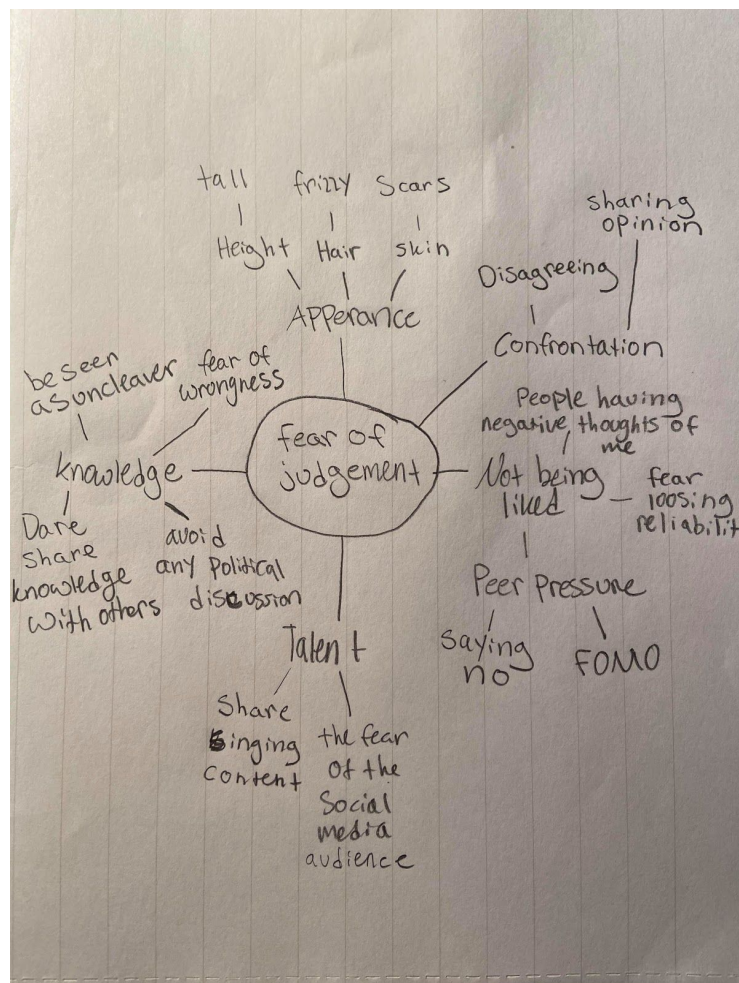 tall
frizzy
Scars
Height
Hair
skin
APPerance
sharing
opinion
Disagreeing
Confrontation
be seen
as uncleaver
fear of
wrongness
knowledge
Dare
share
knowledge
with others
avoid
any political
discussion
fear of
judgement
People having
negative thoughts of
me
Not being
liked
fear
loosing
reliabilit
Peer Pressure
saying
no
FOMO
Talent
Share
singing
content
the fear
of the
Social
media
audience